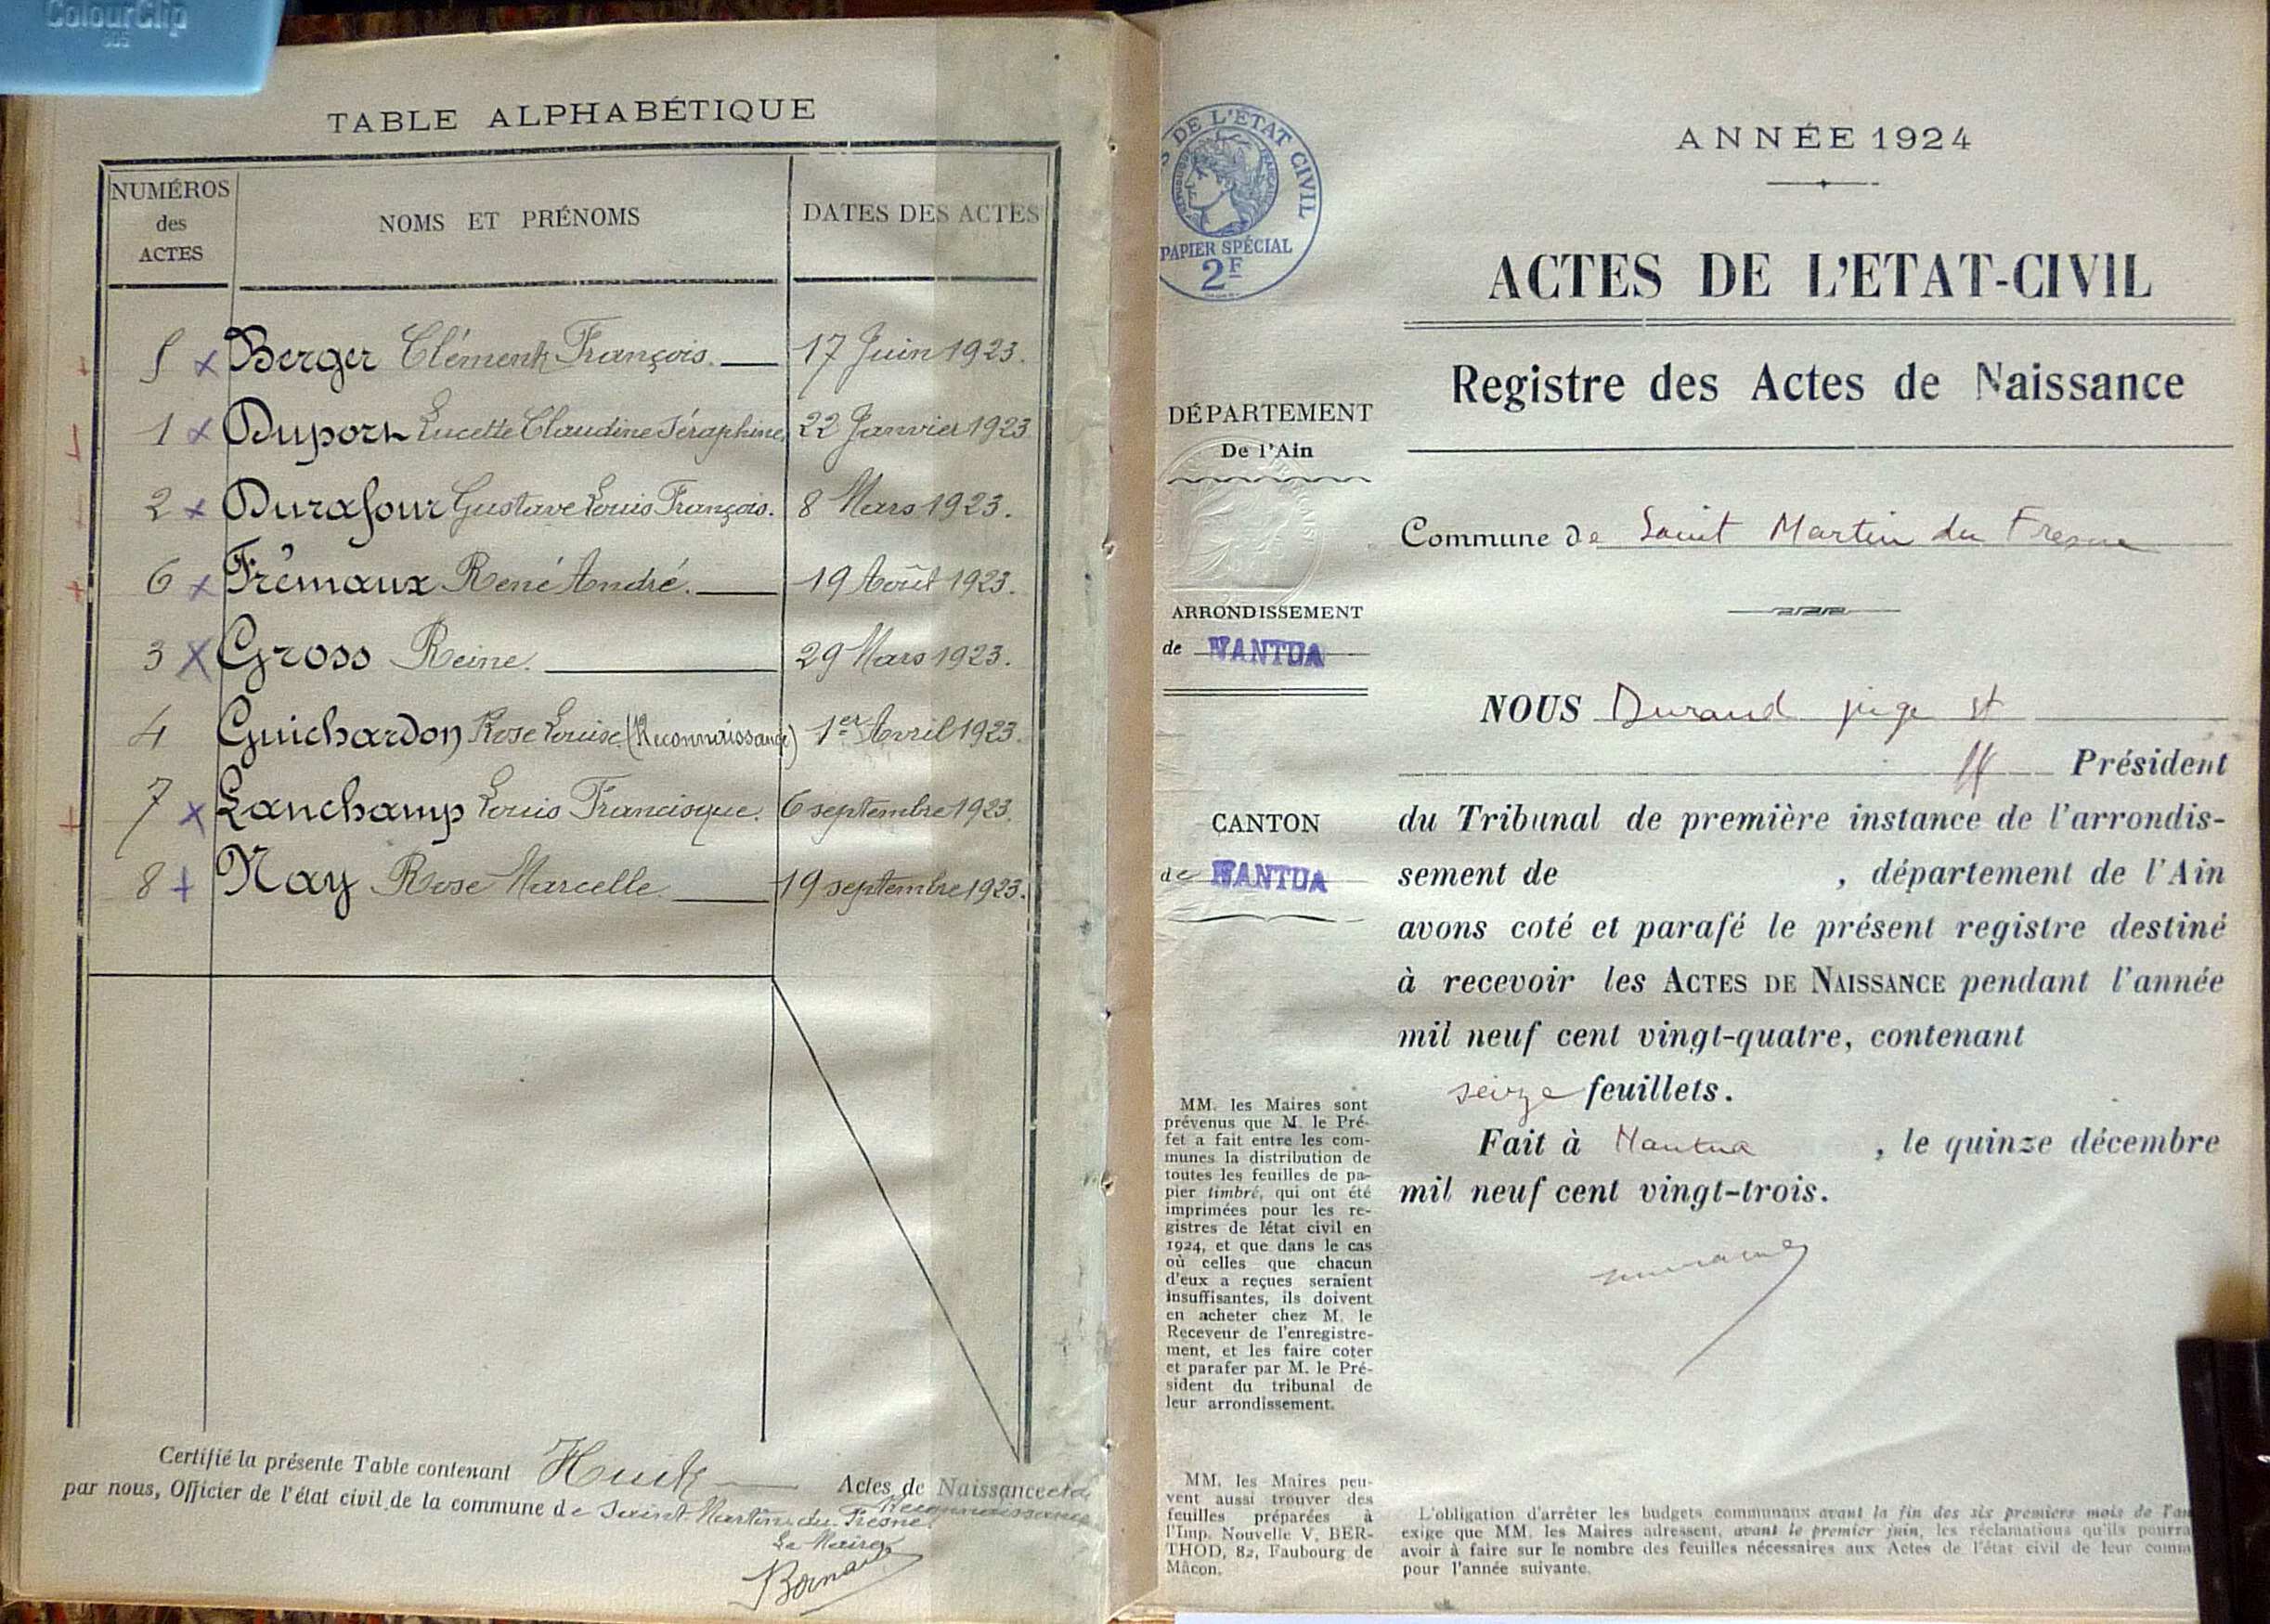 ColourClip
TABLE ALPHABÉTIQUE
NUMÉROS
des
ACTES
NOMS ET PRÉNOMS
DATES DES ACTES
5 x Berger Clément François. 17 Juin 1923.
1 x Duport Lucette Claudine Séraphine 22 Janvier 1923
2 x Durafour Gustave Louis François. 8 Mars 1923.
6 x Frémaux René André. 19 Août 1923.
3 X Gross Reine. 29 Mars 1923.
4 Guichardon Rose Louise (Reconnaissance) 1er Avril 1923.
7 x Lanchamp Louis Francisque. 6 septembre 1923.
8 + Nay Rose Marcelle 19 septembre 1923.
Certifié la présente Table contenant Huit Actes de Naissance et de
Reconnaissance
par nous, Officier de l'état civil de la commune de Saint-Martin-du-Fresne.
Le Maire
DE L'ÉTAT CIVIL
PAPIER SPÉCIAL
2F
ANNÉE 1924
ACTES DE L'ETAT-CIVIL
Registre des Actes de Naissance
DÉPARTEMENT
De l'Ain
Commune de Saint Martin du Fresne
ARRONDISSEMENT
de NANTUA
CANTON
de NANTUA
NOUS Durand juge st
ff Président
du Tribunal de première instance de l'arrondis-
sement de , département de l'Ain
avons coté et parafé le présent registre destiné
à recevoir les ACTES DE NAISSANCE pendant l'année
mil neuf cent vingt-quatre, contenant
seize feuillets.
Fait à Nantua , le quinze décembre
mil neuf cent vingt-trois.
MM. les Maires sont
prévenus que M. le Pré-
fet a fait entre les com-
munes la distribution de
toutes les feuilles de pa-
pier timbré, qui ont été
imprimées pour les re-
gistres de létat civil en
1924, et que dans le cas
où celles que chacun
d'eux a reçues seraient
insuffisantes, ils doivent
en acheter chez M. le
Receveur de l'enregistre-
ment, et les faire coter
et parafer par M. le Pré-
sident du tribunal de
leur arrondissement.
MM. les Maires peu-
vent aussi trouver des
feuilles préparées à
l'Imp. Nouvelle V. BER-
THOD, 82, Faubourg de
Mâcon.
L'obligation d'arrêter les budgets communaux avant la fin des six premiers mois de l'an
exige que MM. les Maires adressent, avant le premier juin, les réclamations qu'ils pourra
avoir à faire sur le nombre des feuilles nécessaires aux Actes de l'état civil de leur comm
pour l'année suivante.